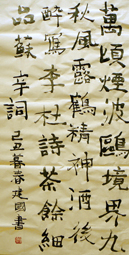 萬頃煙波鷗境界九
秋風露鶴精神酒後
醉寫李杜詩茶餘細
品蘇辛詞己丑暮春建國書